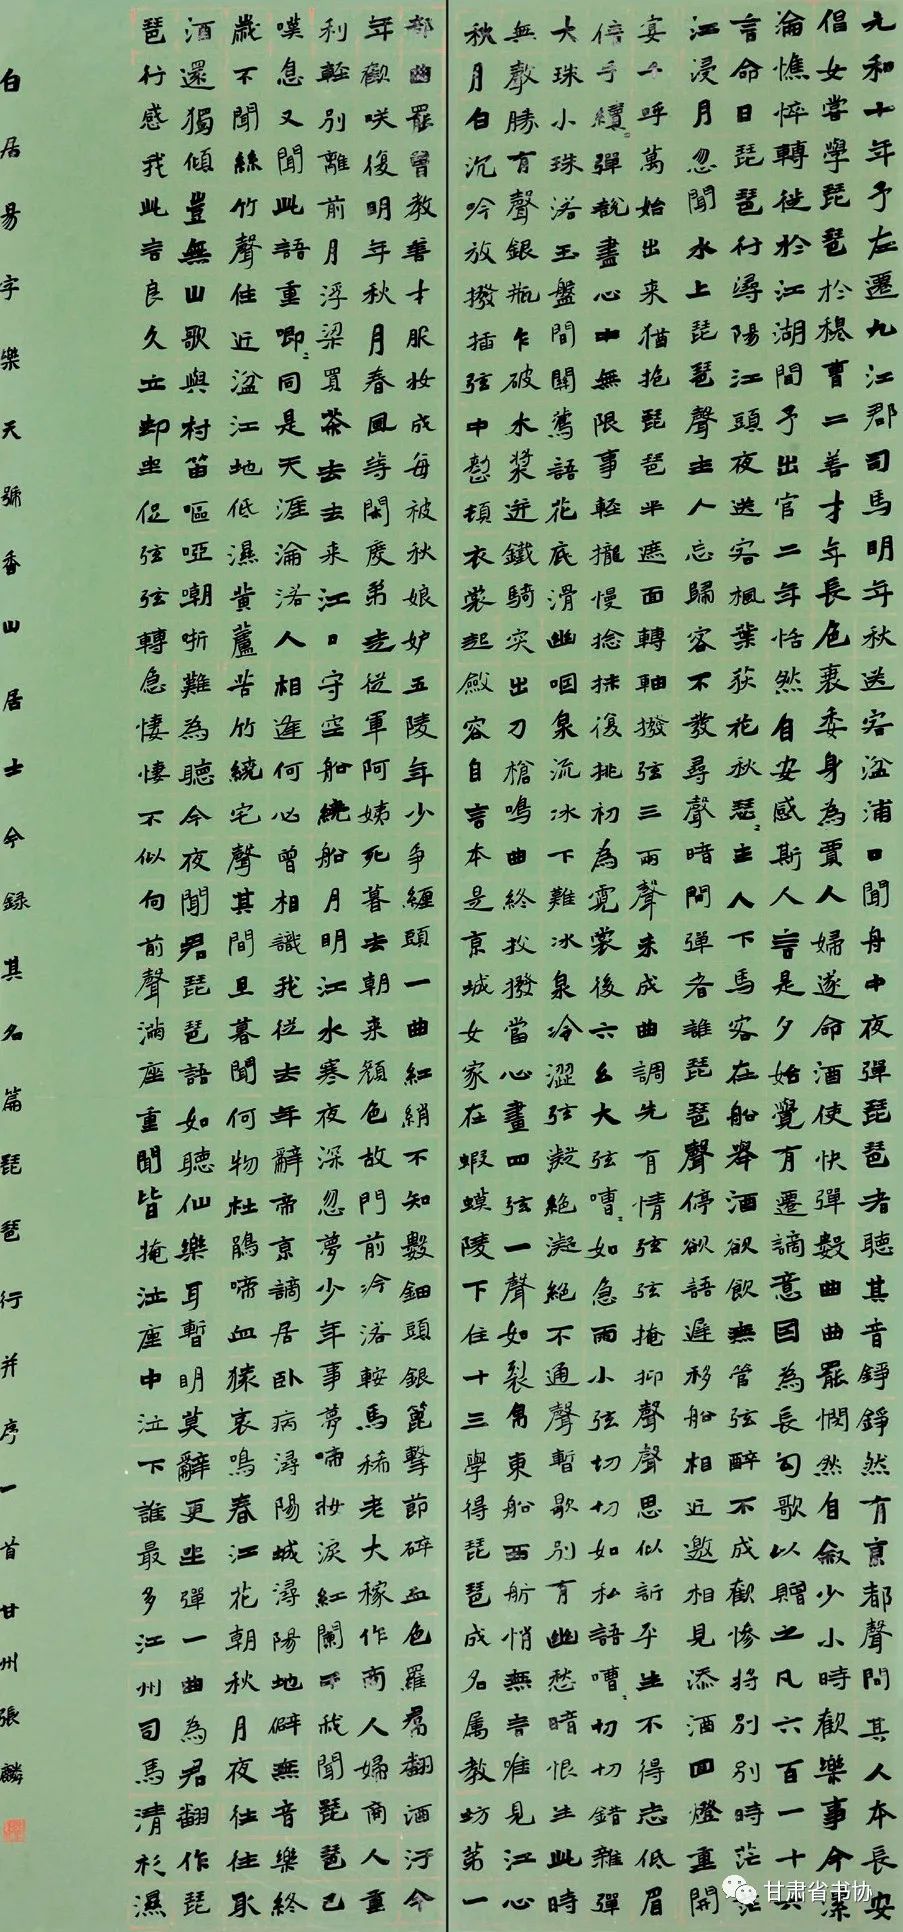 元和十年予左遷九江郡司馬明年秋送客湓浦口聞舟中夜彈琵琶者聽其音錚錚然有京都聲問其人本長安
倡女嘗學琵琶於穆曹二善才年長色衰委身為賈人婦遂命酒使快彈數曲曲罷憫然自敘少小時歡樂事今漂
淪憔悴轉徙於江湖間予出官二年恬然自安感斯人言是夕始覺有遷謫意因為長句歌以贈之凡六百一十六
言命曰琵琶行潯陽江頭夜送客楓葉荻花秋瑟〻主人下馬客在船舉酒欲飲無管弦醉不成歡慘將別別時茫茫
江浸月忽聞水上琵琶聲主人忘歸客不發尋聲暗問彈者誰琵琶聲停欲語遲移船相近邀相見添酒回燈重開
宴千呼萬始出來猶抱琵琶半遮面轉軸撥弦三兩聲未成曲調先有情弦弦掩抑聲聲思似訴平生不得志低眉
信手續〻彈說盡心中無限事輕攏慢捻抹復挑初為霓裳後六幺大弦嘈〻如急雨小弦切切如私語嘈〻切切錯雜彈
大珠小珠落玉盤間關鶯語花底滑幽咽泉流冰下難冰泉冷澀弦凝絕凝絕不通聲暫歇別有幽愁暗恨生此時
無聲勝有聲銀瓶乍破水漿迸鐵騎突出刀槍鳴曲終收撥當心畫四弦一聲如裂帛東船西舫悄無言唯見江心
秋月白沉吟放撥插弦中整頓衣裳起斂容自言本是京城女家在蝦蟆陵下住十三學得琵琶成名屬教坊第一
部曲罷曾教善才服妝成每被秋娘妒五陵年少爭纏頭一曲紅綃不知數鈿頭銀篦擊節碎血色羅裙翻酒污今
年歡咲復明年秋月春風等閑度弟走從軍阿姨死暮去朝來顏色故門前冷落鞍馬稀老大嫁作商人婦商人重
利輕別離前月浮梁買茶去去來江口守空船繞船月明江水寒夜深忽夢少年事夢啼妝淚紅闌干我聞琵琶已
嘆息又聞此語重唧〻同是天涯淪落人相逢何必曾相識我從去年辭帝京謫居臥病潯陽城潯陽地僻無音樂終
歲不聞絲竹聲住近湓江地低濕黃蘆苦竹繞宅聲其間旦暮聞何物杜鵑啼血猿哀鳴春江花朝秋月夜往往取
酒還獨傾豈無山歌與村笛嘔啞嘲哳難為聽今夜聞君琵琶語如聽仙樂耳暫明莫辭更坐彈一曲為君翻作琵
琶行感我此言良久立卻坐促弦弦轉急悽悽不似向前聲滿座重聞皆掩泣座中泣下誰最多江州司馬清衫濕
白居易字樂天號香山居士今錄其名篇琵琶行并序一首甘州張麟
甘肃省书协